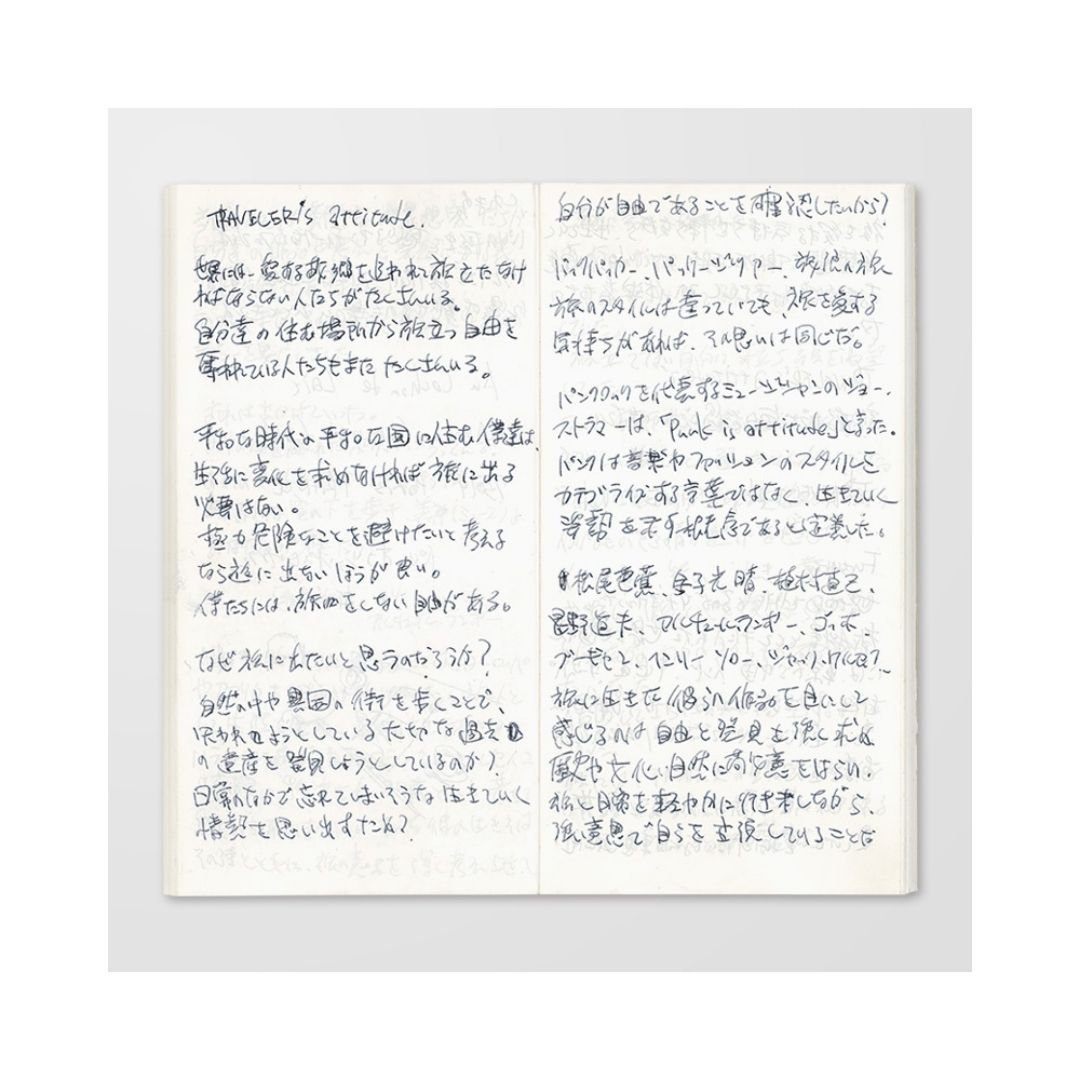 TRAVELER's attitude.
世界には、愛する故郷を追われ旅立たなけ
ればならない人たちがたくさんいる。
自分達の住む場所から旅立つ自由を
奪われている人たちもまたたくさんいる。
平和な時代の平和な国に住む僕達は、
生活に変化を求めなければ旅に出る
必要はない。
極力危険なことを避けたいと考える
なら旅に出ないほうが良い。
僕たちには、旅をしない自由がある。
なぜ旅に出たいと思うのだろうか?
自然の中や異国の街を歩くことで、
失われようとしている大切な過去
の遺産を発見しようとしているのか?
日常のなかで忘れてしまいそうな生きていく
情熱を思い出すため?
自分が自由であることを確認したいから?
バックパッカー、パッケージツアー、
旅のスタイルは違っていても、旅を愛する
気持ちがあれば、その思いは同じだ。
パンクロックを代表するミュージシャンのジョー・
ストラマーは、「Punk is attitude」と言った。
パンクは音楽やファッションのスタイルを
カテゴライズする言葉ではなく、生きていく
姿勢を示す概念であると定義した。
松尾芭蕉、金子光晴、植村直己、
星野道夫、アルチュール・ランボー、ゴッホ、
ブーゲンビル、ヘンリー・ソロー、ジャック・ケルアック
旅に生きた彼らの作品を目にして
感じるのは自由と発見を強く求め
歴史や文化、自然に敬意をはらい、
旅と日常を軽やかに行き来しながら、
強い意思で自らを主張していることだ